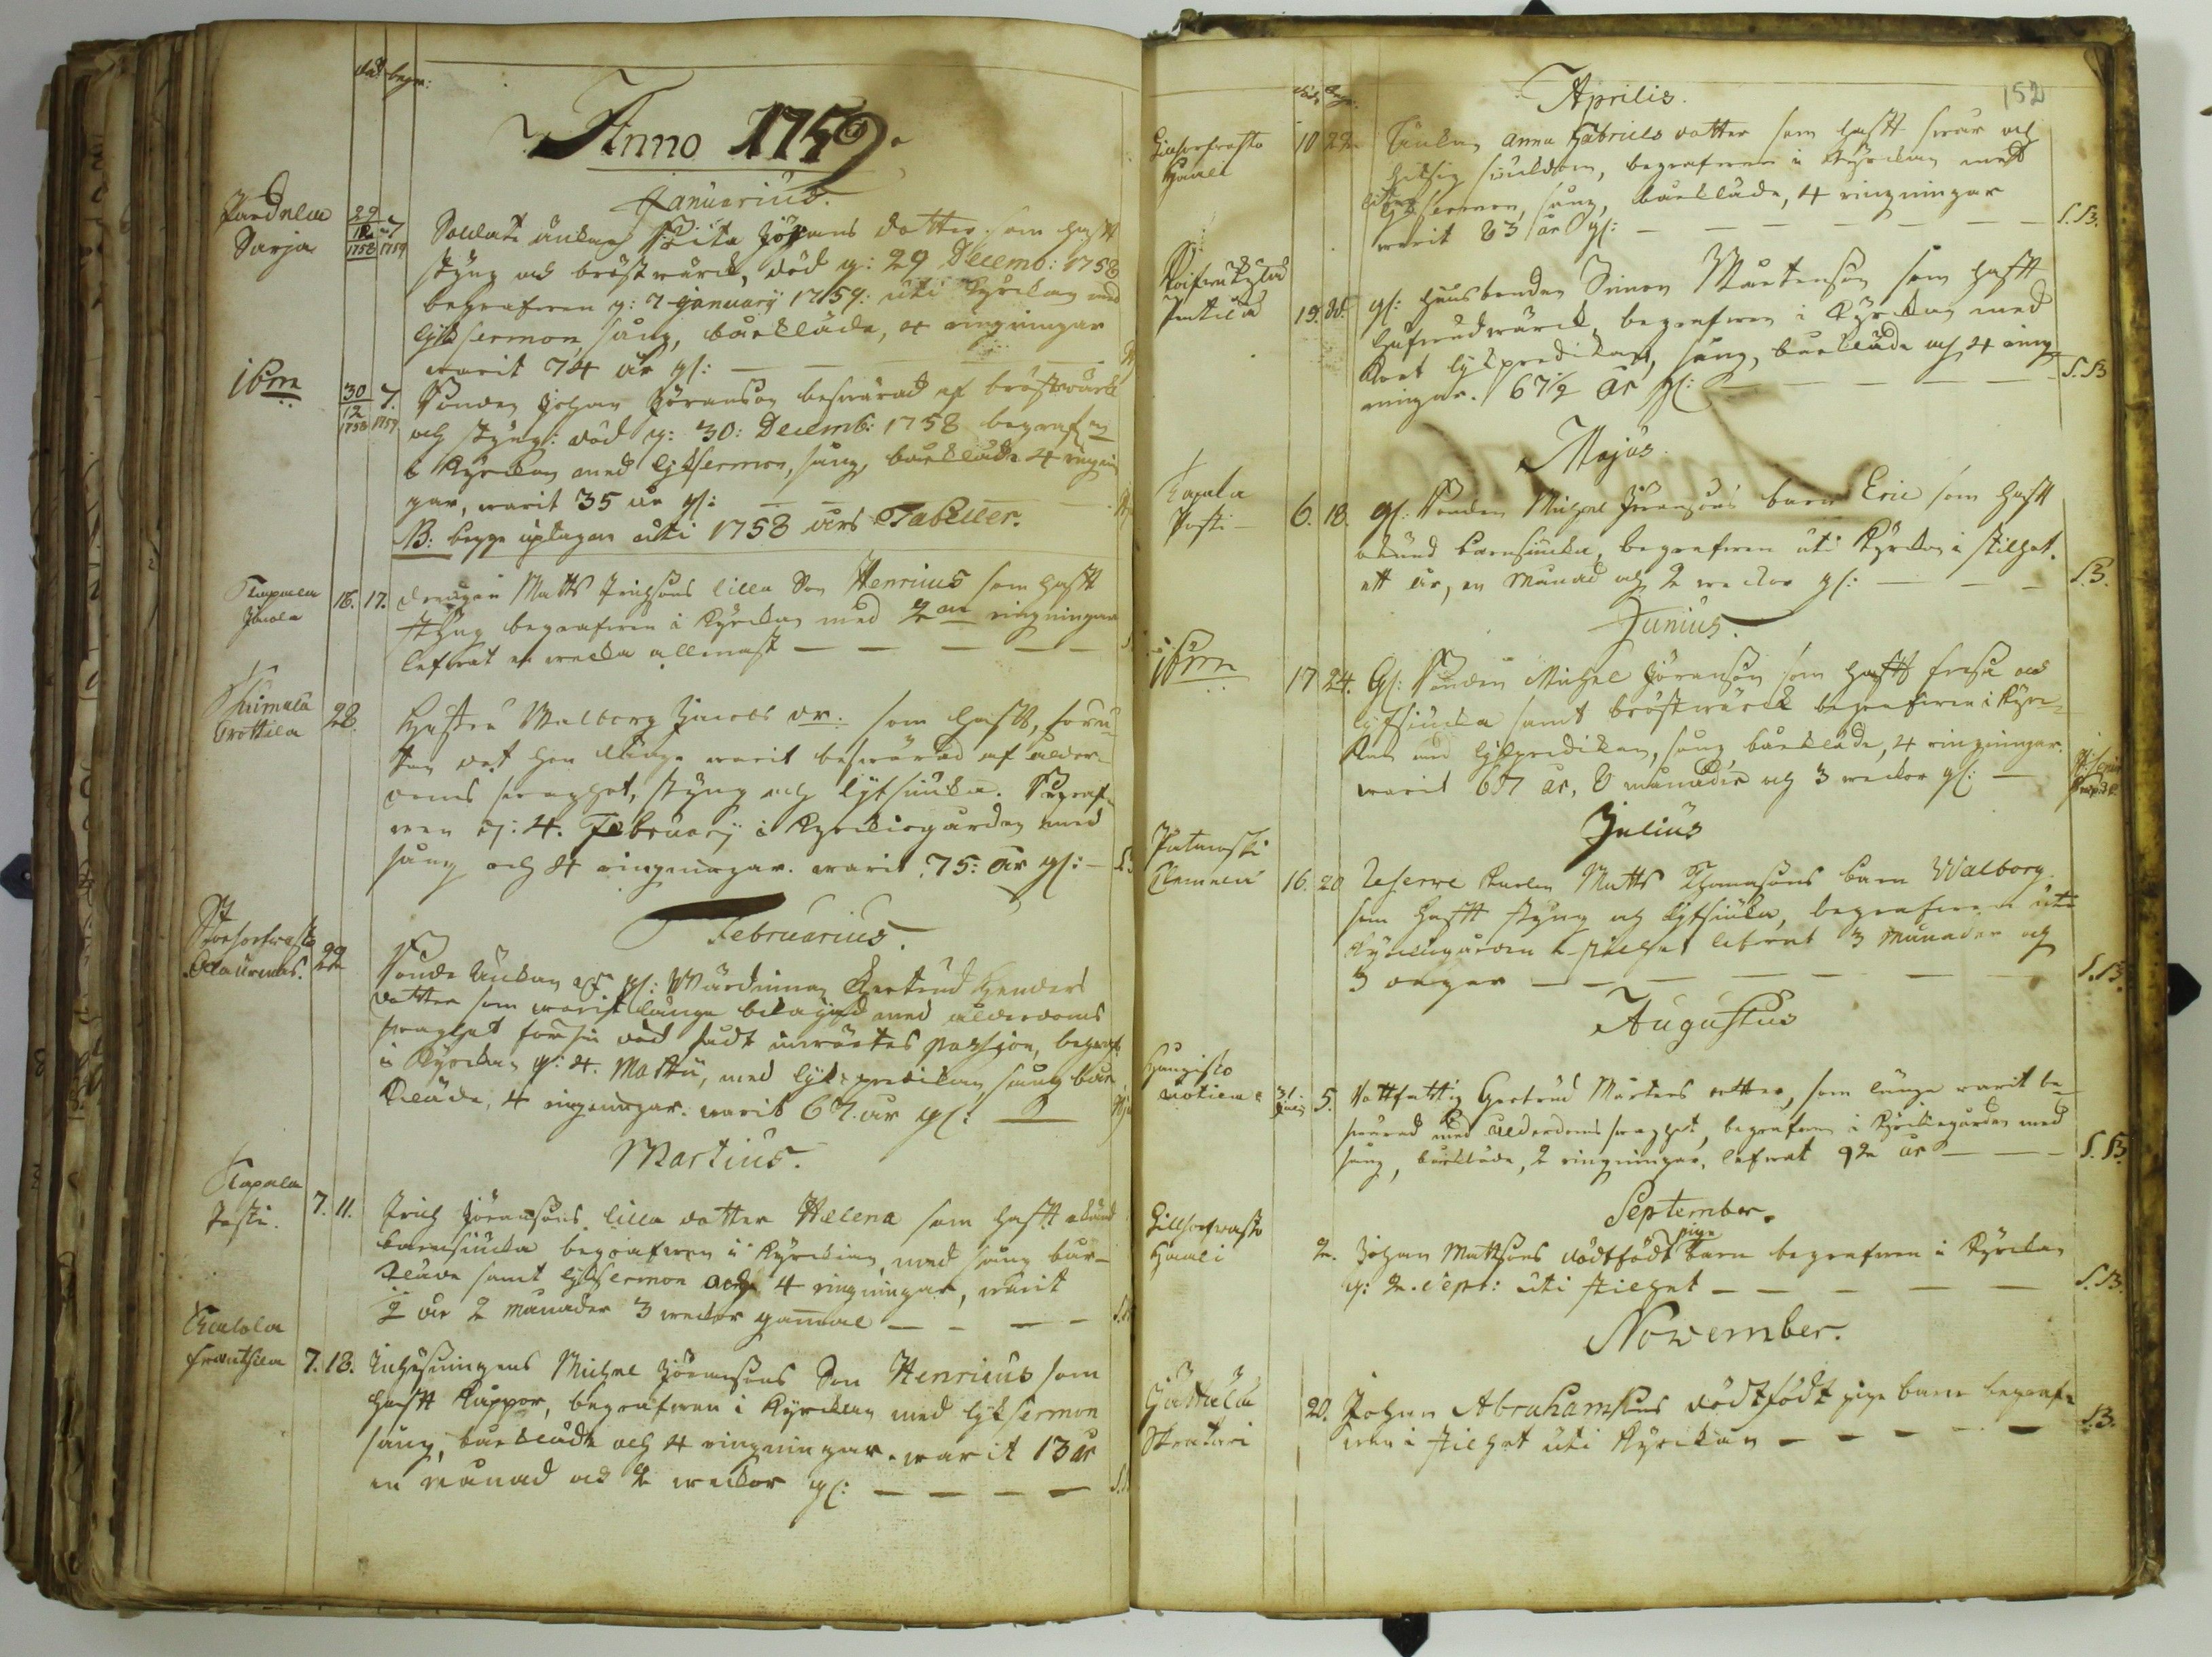 död begr:
Anno 1759.
Januarius.
Sarja
29 12 1758
7 1759
Soldate änkan Brita Jörans dotter som haft
styng och bröstwärck, död d: 29 Decemb: 1758
begrafwen d: 7 January 1759. uti Kyrckan med
lijk sermon, sång, bårkläde, 4 ringningar
warit 74 år gl:
ibm
30 12 1758
7. 1759
Bonden Johan Jöranson beswärad af bröstwärck
och styng: död d: 30: Decemb: 1758 begrafn
i Kyrckan med lijksermon, sång, bårkläde 4 ringnin
gar, warit 35 år gl:
NB: begge uptagne uti 1758 års Tabeller.
16. 17.
drengen Matts Erichsons lilla Son Henricus som haft
styng begrafwen i Kyrckan med 2ne ringningar
lefwat en wecka allenast
28.
Hustru Walborg Jacobs dr: som haft, foru
tan det hon länge warit beswärad af ålder-
doms swaghet, styng och lytsiucka. Begraf-
wen d: 4. February i Kyrckiogården med
sång och 4 ringningar. warit 75: år gl:
Februarius.
22
Bonde Änkan Gertrud Henders
dotter som warit länge belagd med ålderdoms
swaghet för sin död fådt inwärtes passion, begraf:
i Kyrckan d: 4. Martii, med lijk predikan, sång bår
kläde, 4 ringningar. warit 67. år gl:
Martius.
Kapala
7. 11.
Erich Jöransons lilla dotter Helena som haft okänd
barnsiucka begrafwen i Kyrckian med sång bår-
kläde samt lijksermon och 4 ringningar, warit
2 år 2 månader 3 weckor gammal
7. 18.
Inhysningens Michel Jöransons Son Henricus som
haft Kåppor, begrafwen i Kyrckan med lijksermon
sång, bårkläde och 4 ringningar. warit 13 år
en månad och 2 weckor gl:
152
Aprilis.
10 22
Änkan Anna Gabriels dotter som haft swår och
hitsig siukdom, begrafwen i Kyrckan med
lijksermon, sång, bårkläde, 4 ringningar
warit 63 år gl:
S.B.
19.
gl: husbonden Simon Mårtenson som haft
hufwudwärck, begrafwen i Kyrckan med
Kort lijkpredikan, sång, bårkläde och 4 ring
ningar. 67 1/2 år gl:
S.B
Majus.
Kapala
6. 18.
gl: Bonden Michel Jöransons barn Eric som haft
okänd barnsiucka, begrafwen uti Kyrckan i stilhet.
ett år, en Månad och 2 weckor gl:
S.B.
Junius.
ibm
17 24.
Gl: Bonden Michel Jöranson som haft frosa och
lytsiucka samt bröstwärck begrafwen i Kyrc-
kan med lijkpredikan, sång bårkläde, 4 ringningar.
warit 67 år, 8 månader och 3 weckor gl:
Julius
16. 20
Reserve Karlen Matts Thomasons barn Walborg.
som haft styng och lytsiucka, begrafwen uti
Kyrckiogården i stilhet lefwat 3 Månader och
3 dagar
S.B.
Augustus
31 5.
Gertrud Mårtens dotter, som länge warit be-
swärad med ålderdoms swaghet, begrafwen i Kyrckiogården med
sång, bårkläde, 2 ringningar, lefwat 92 år
S.B.
September.
2.
Johan Mattsons dödfödt pige barn begrafwen i Kyrckan
d: 2. sept: uti stilhet
S.B.
November.
20.
Johan Abrahamsons dödfödt pige barn begraf-
wen i stilhet uti Kyrckan
S.B.